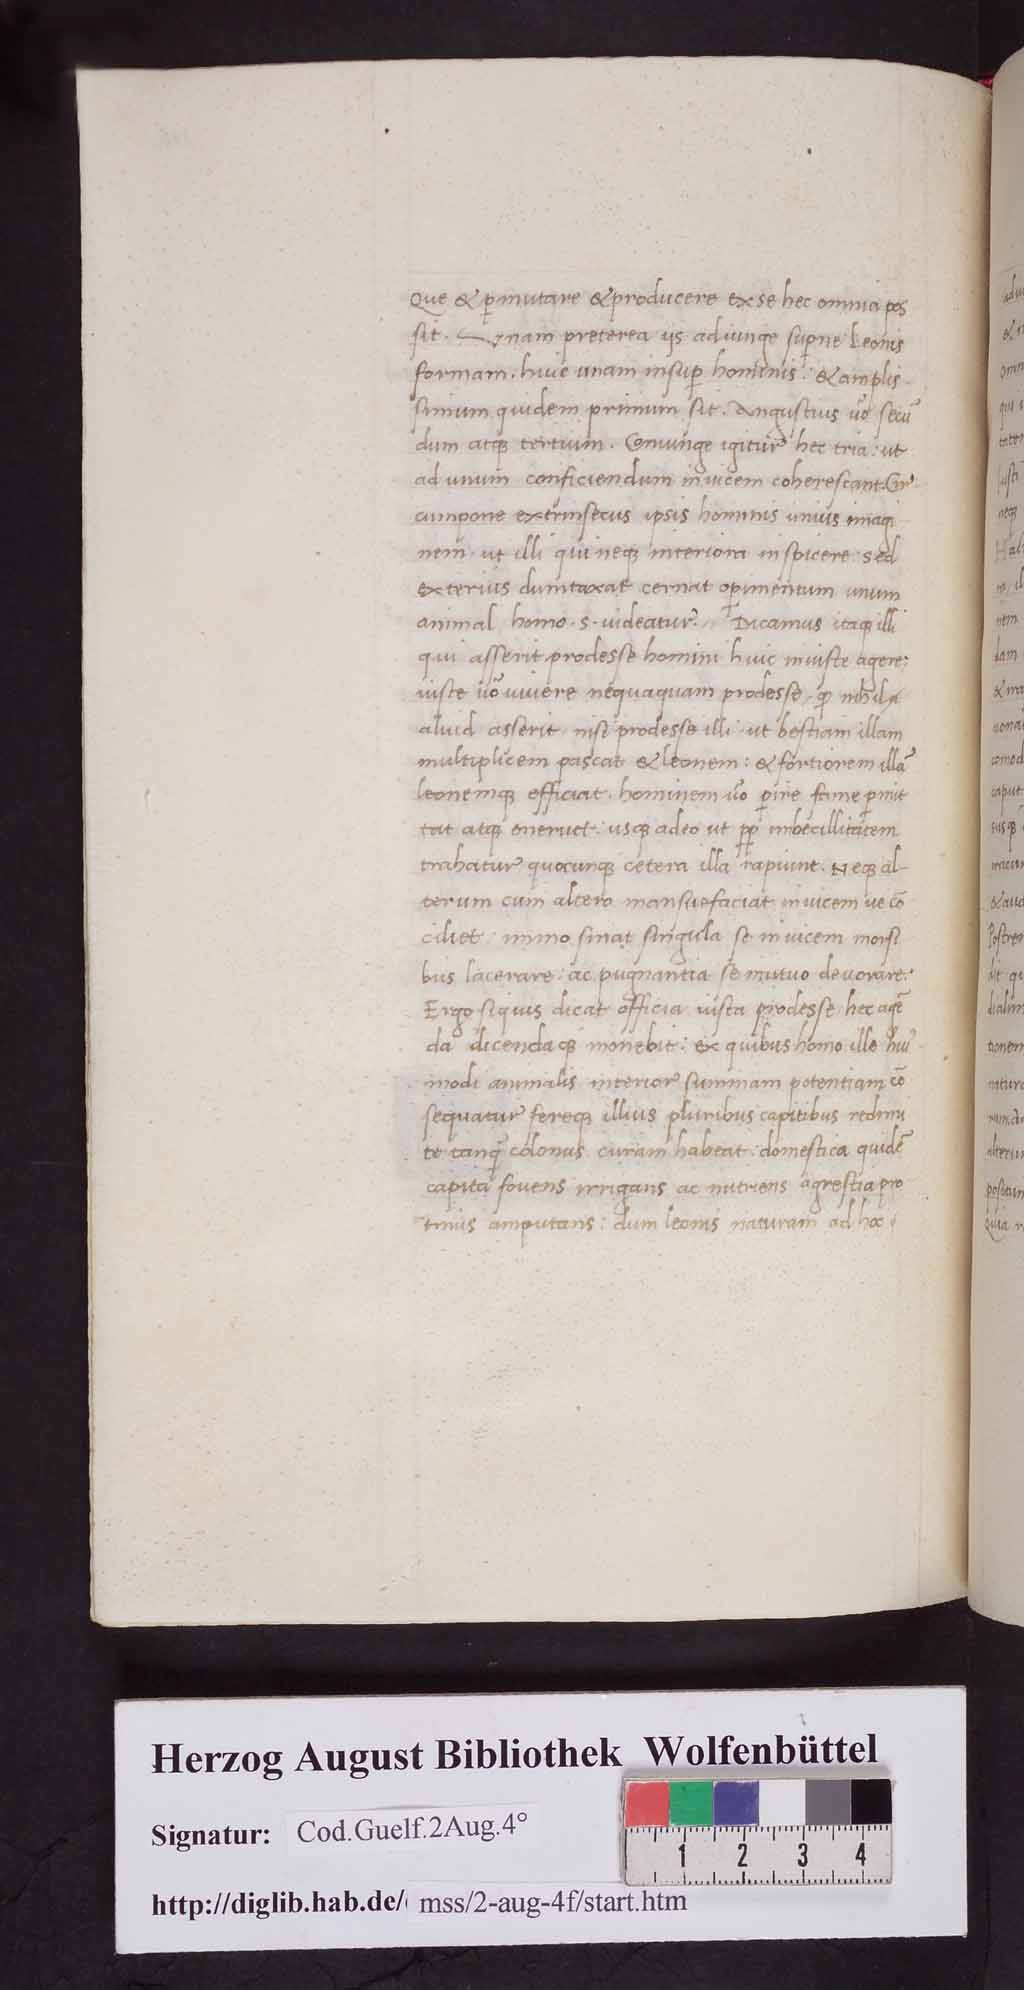 Que & p̱mutare & producere ex se hec omnia pos
sit. Unam preterea ijs adiunge sup̱ne Leonis
formam. huic unam insup̱ hominis: & amplis
simum quidem primum sit. Angustius ṽo secũ
dum atq; tertium. Coniunge igitur hec tria: ut
ad unum conficiendum invicem coherescant. Cir
cumpone extrinsecus ipsis hominis unius imagi
nem. ut illi qui neq; interiora inspicere: sed
exterius dumtaxat cernat op̱imentum unum
animal homo .s. videatur. Dicamus itaq; illi
qui asserit prodesse homini huic iniuste agere:
iuste ṽo vivere nequaquam prodesse
aliud asserit nisi prodesse illi ut bestiam illam
multiplicem pascat & leonem: & fortiorem illã
leonemq; efficiat. hominem ṽo p̱ire fame p̱mit
tat atq; enervet: usq; adeo ut pp̱ imbecillitatem
trahatur quocunq; cetera illa rapiunt. Neq; al
terum cum altero mansuefaciat invicem ve cõ
ciliet: immo sinat singula se invicem morsi
bus lacerare: ac pugnantia se mutuo devorare:
Ergo siquis dicat officia iusta prodesse hec agẽ
da dicendaq; monebit: ex quibus homo ille hui'
modi animalis interior summam potentiam cõ
sequatur fereq; illius pluribus capitibus redimi
te tanq̃ colonus curam habeat: domestica quidẽ
capita fovens irrigans ac nutriens agrestia pro
tinus amputans: dum leonis naturam ad hoc
Herzog August Bibliothek Wolfenbüttel
Signatur: Cod.Guelf.2Aug.4°
1 2 3 4
http://diglib.hab.de/ mss/2-aug-4f/start.htm